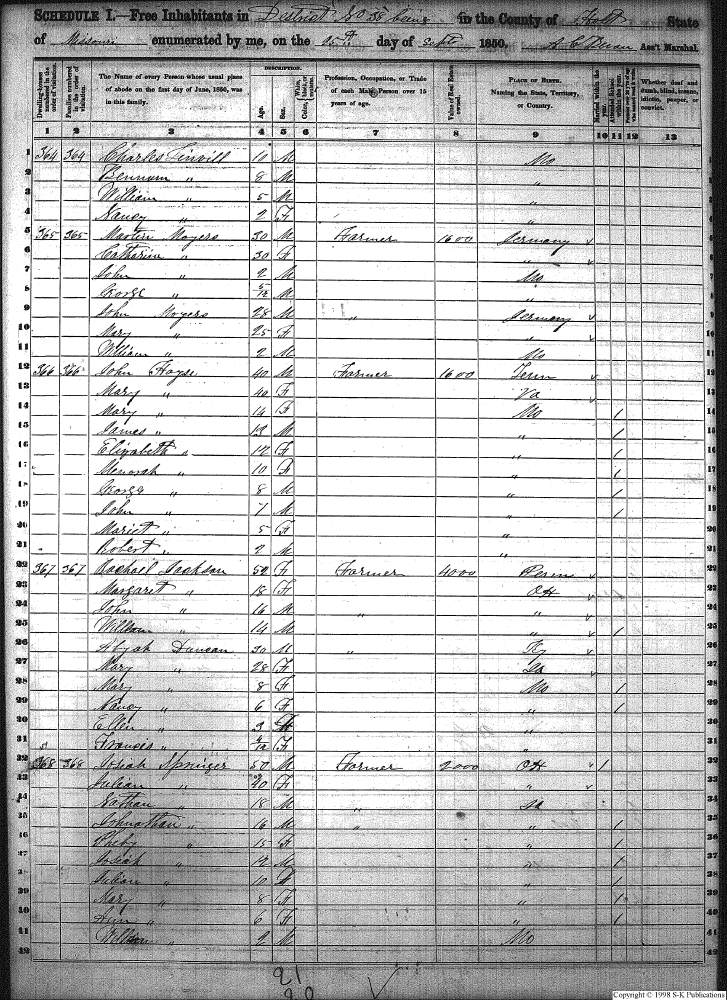 SCHEDULE I.—Free Inhabitants in District No 38 being in the County of Holt State
of Missouri enumerated by me, on the 25th day of Sept 1850. Ass't Marshal.
Dwelling-houses numbered in the order of visitation.
Families numbered in the order of visitation.
The Name of every Person whose usual place of abode on the first day of June, 1850, was in this family.
DESCRIPTION.
Age.
Sex.
White, Color, black, or mulatto.
Profession, Occupation, or Trade of each Male Person over 15 years of age.
Value of Real Estate owned.
PLACE OF BIRTH. Naming the State, Territory, or Country.
Married within the year.
Attended School within the year.
Whether deaf and dumb, blind, insane, idiotic, pauper, or convict.
1 2 3 4 5 6 7 8 9 10 11 12 13
1 364 364 Charles Linvill 10 M Mo
2 " 8 M "
3 William " 5 M "
4 Nancy " 2 F "
5 365 365 Martin Moyers 30 M Farmer 1600 Germany
6 Catharine " 30 F "
7 John " 2 M Mo
8 George " M "
9 John Moyers 28 M " Germany
10 Mary " 25 F "
11 William " 2 M Mo
12 366 366 John 40 M Farmer 1600 Tenn
13 Mary " 40 F Va
14 Mary " 14 F Mo 1
15 James " 13 M " 1
16 Elizabeth " 12 F " 1
17 " 10 F " 1
18 George " 8 M " 1
19 John " 7 M " 1
20 " 5 F "
21 Robert " 2 M "
22 367 367 Rachael Jackson 52 F Farmer 4000 Penn
23 Margaret " 18 F OH
24 John " 16 M " "
25 William " 14 M " 1
26 Duncan 30 M " Ky
27 Mary " 28 F
28 Mary " 8 F Mo 1
29 Nancy " 6 F " 1
30 Ellen " 3 F "
31 Francis " F "
32 368 368 Josiah Springer 50 M Farmer 2000 OH 1
33 Julian " 40 F "
34 Nathan " 18 M "
35 Johnathan " 16 M " " 1
36 " 15 F " 1
37 Josiah " 12 M " 1
38 Julian " 10 F " 1
39 Mary " 8 F " 1
40 Ann " 6 F " 1
41 William " 2 M Mo
42
21
20
Copyright © 1998 S-K Publications